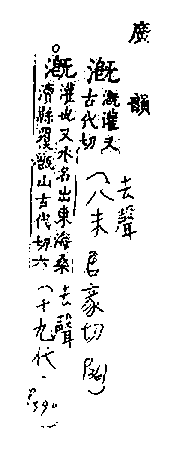 廣韻
漑 漑灌又
古代切
去聲
(八未 居豪切
漑 灌也又水名出東海桑
瀆縣覆甑山古代切六
去聲
(十九代.P390)